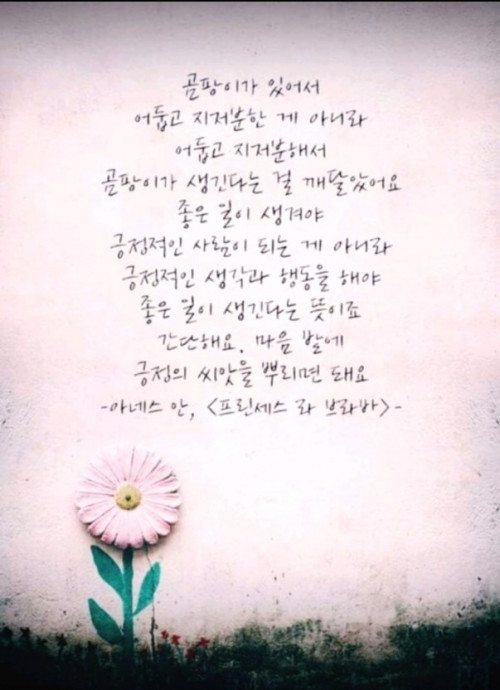 곰팡이가 있어서
어둡고 지저분한 게 아니라
어둡고 지저분해서
곰팡이가 생긴다는 걸 깨달았어요
좋은 일이 생겨야
긍정적인 사람이 되는 게 아니라
긍정적인 생각과 행동을 해야
좋은 일이 생긴다는 뜻이죠
간단해요. 마음 밭에
긍정의 씨앗을 뿌리면 돼요
-아네스 안, <프린세스 라 브라바>-